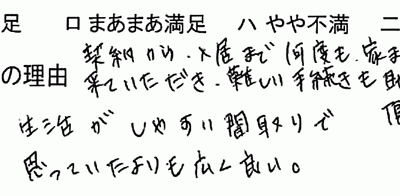 足 ロ まあまあ満足 ハ やや不満 ニ
契約から、入居まで何度も、家ま
の理由 来ていただき、難しい手続きも助
生活がしやすい間取りで
思っていたよりも広く良い。